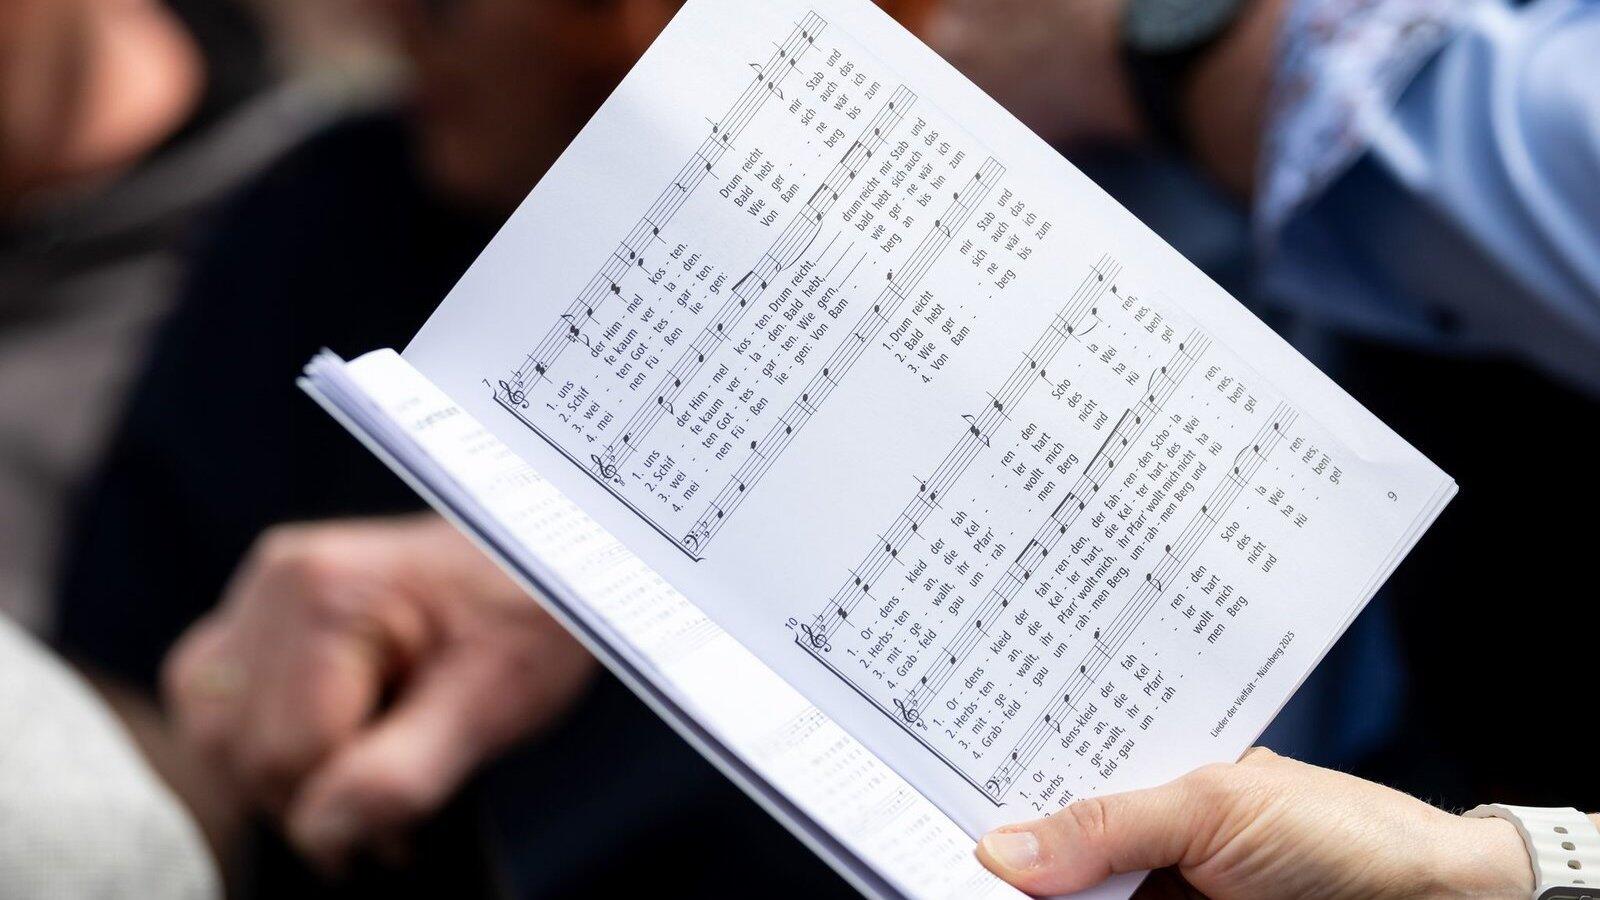 7
Drum reicht mir Stab und
Bald hebt sich auch das
Wie ger - - ne wär ich
Von Bam - - berg bis zum
1. uns der Him - mel kos - ten.
2. Schif - fe kaum ver - la - den.
3. wei - ten Got - tes gar - ten.
4. mei - nen Fü - ßen lie - gen:
1. uns der Him - mel kos - ten. Drum reicht, drum reicht mir Stab und
2. Schif - fe kaum ver - la - den. Bald hebt, bald hebt sich auch das
3. wei - ten Got - tes - gar - ten. Wie gern, wie ger - ne wär ich
4. mei - nen Fü - ßen lie - gen: Von Bam - berg an bis hin zum
1. Drum reicht mir Stab und
2. Bald hebt sich auch das
3. Wie ger - - ne wär ich
4. Von Bam - - berg bis zum
10
1. Or - dens - kleid der fah - - ren - den Scho - - la - ren,
2. Herbs - ten an, die Kel - - ler hart des Wei - nes,
3. mit ge - wallt, ihr Pfarr' - wollt mich nicht ha - ben!
4. Grab - feld - gau um - rah - - men Berg und Hü - gel
1. Or - dens - kleid der fah - ren - den, der fah - ren - den Scho - la - ren,
2. Herbs - ten an, die Kel - ler hart, die Kel - ter hart, des Wei - nes,
3. mit - ge - wallt, ihr Pfarr' wollt mich, ihr Pfarr' wollt mich nicht ha - ben!
4. Grab - feld - gau um - rah - men Berg, um - rah - men Berg und Hü - gel
1. Or - dens-kleid der fah - - ren - den Scho - - la - ren.
2. Herbs - ten an, die Kel - - ler hart des Wei - nes,
mit ge - wallt, ihr Pfarr' - wollt mich nicht ha - ben!
feld - gau um - rah - - men Berg und Hü - gel
Lieder der Vielfalt – Nürnberg 2025
9